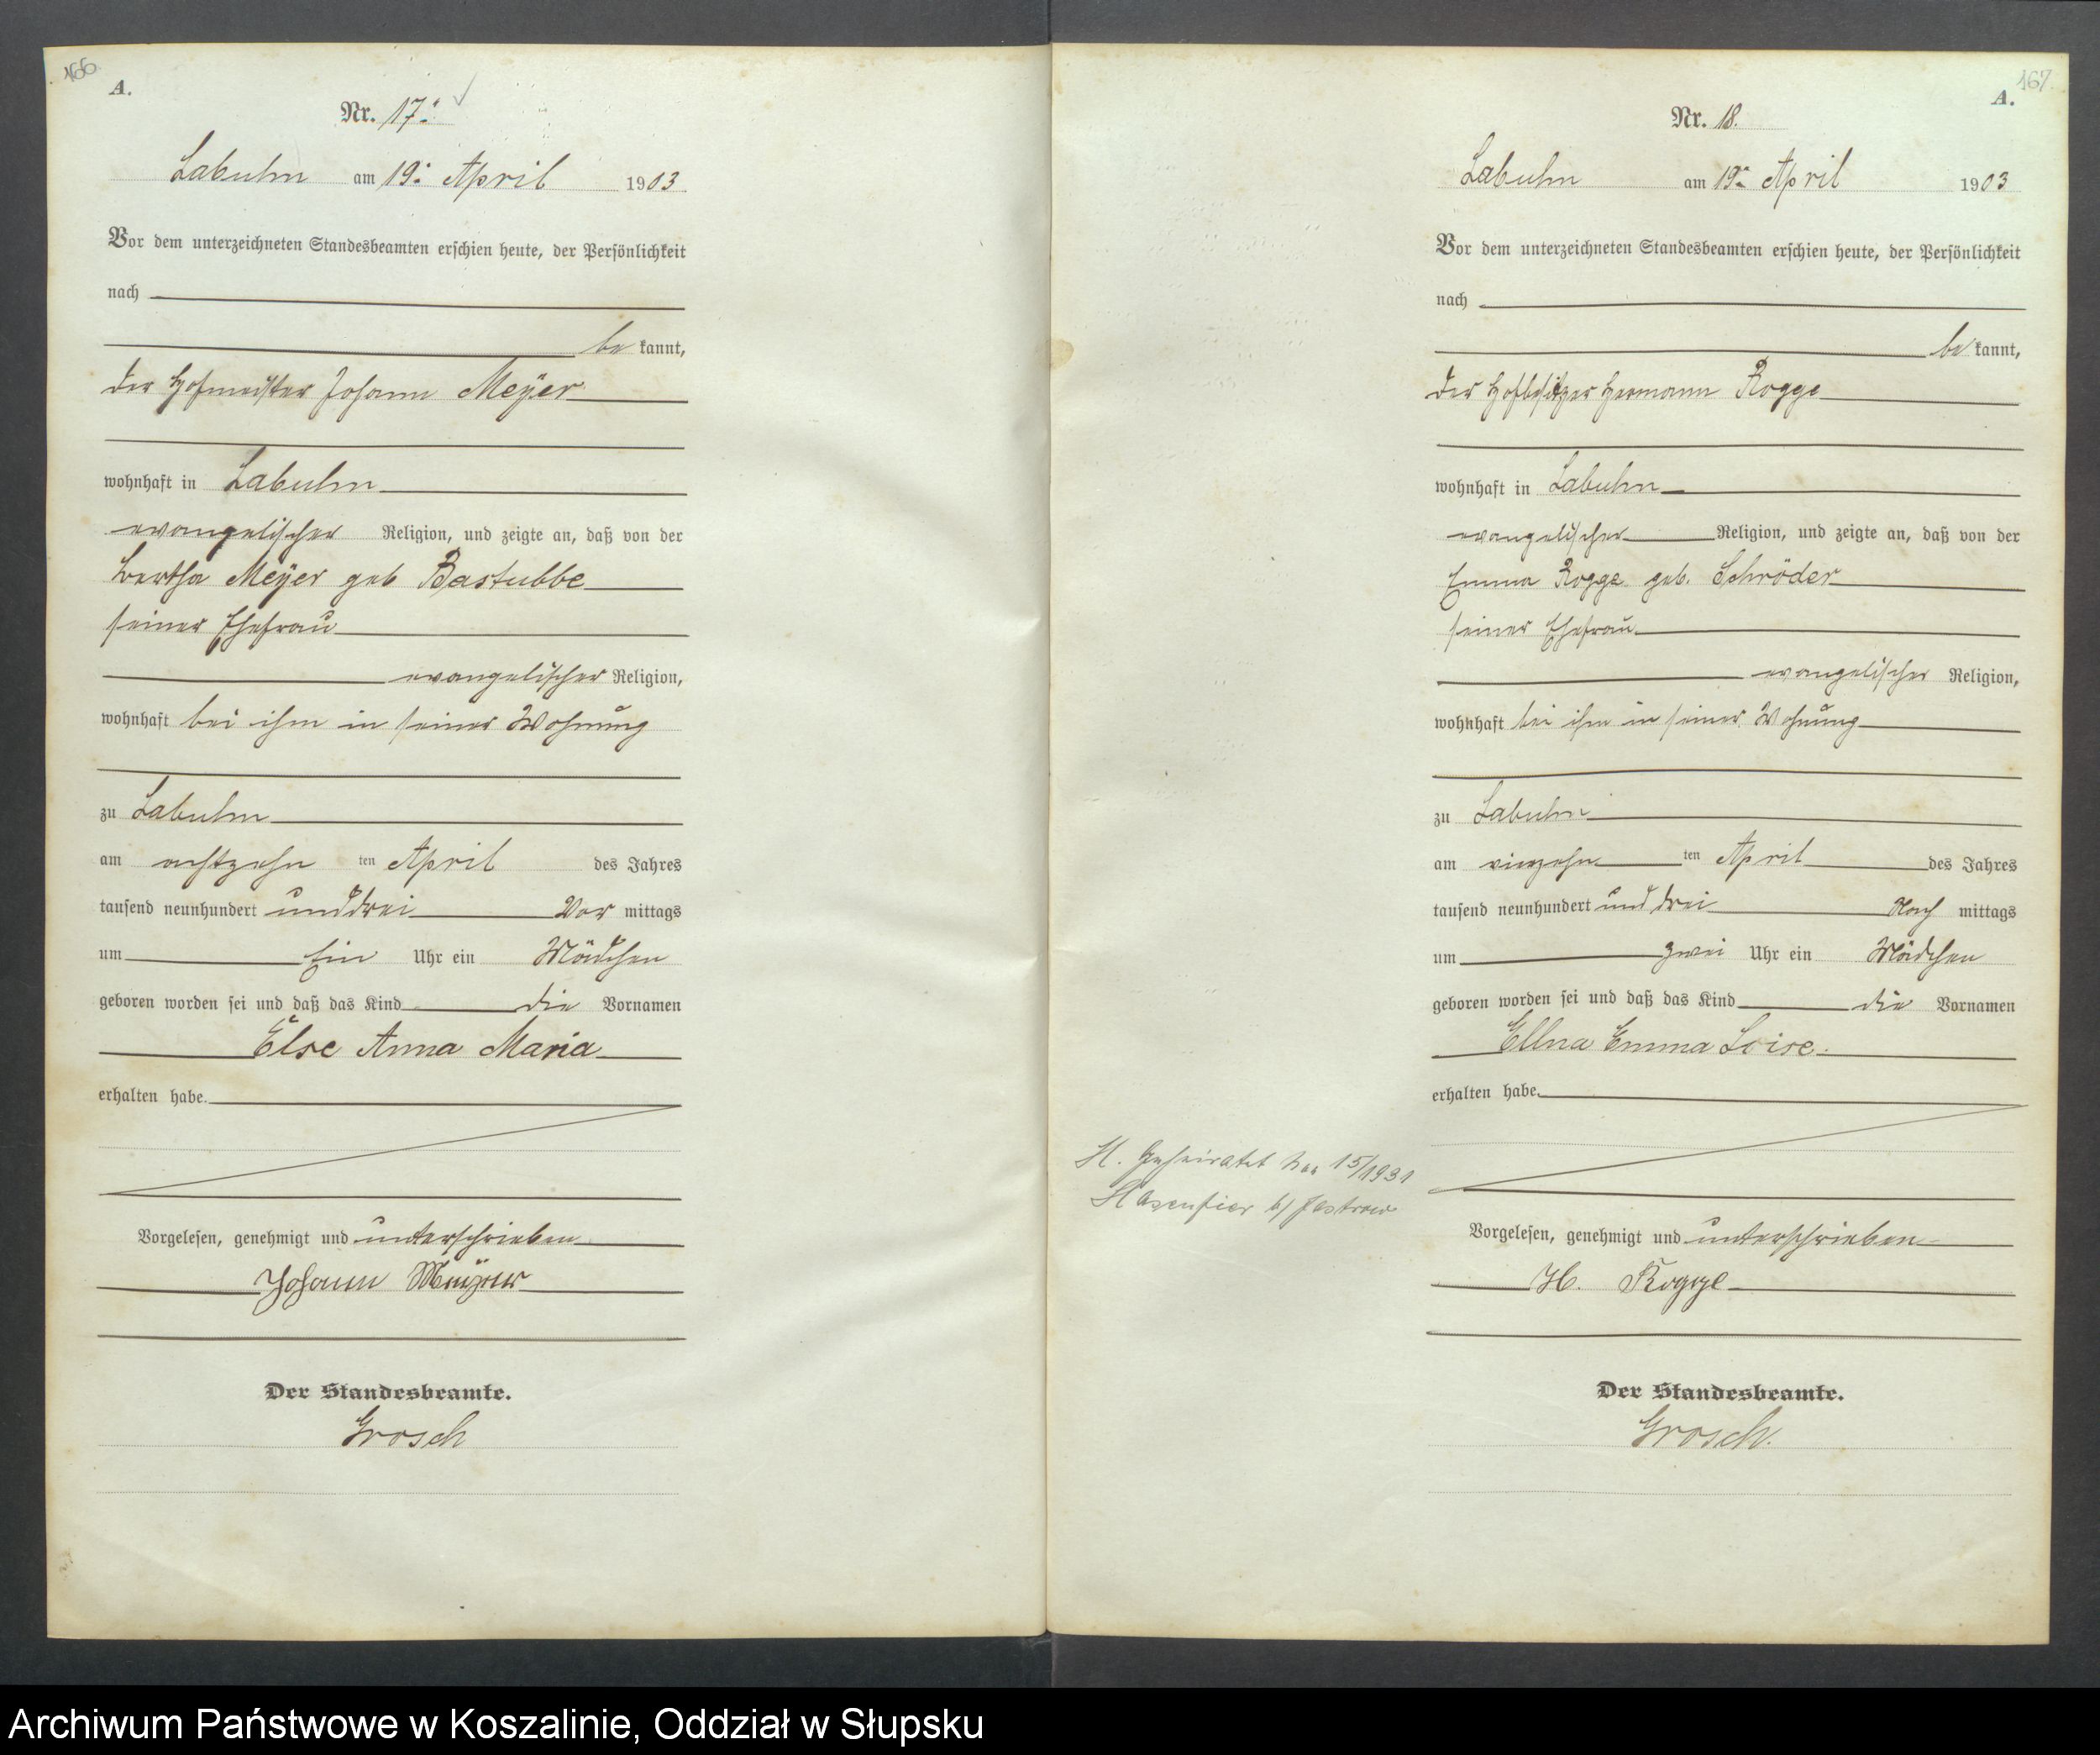 166
A.
Nr. 17.
Labuhn am 19. April 1903
Vor dem unterzeichneten Standesbeamten erschien heute, der Persönlichkeit
nach
be kannt,
der Hofmeister Johann Meÿer
wohnhaft in Labuhn
evangelischer Religion, und zeigte an, daß von der
Bertha Meÿer geb Bastubbe
seiner Ehefrau
evangelischer Religion,
wohnhaft bei ihm in seiner Wohnung
zu Labuhn
am achtzehn ten April des Jahres
tausend neunhundert und drei Vor mittags
um Ein Uhr ein Mädchen
geboren worden sei und daß das Kind die Vornamen
Else Anna Maria
erhalten habe.
Vorgelesen, genehmigt und unterschrieben
Johann Meÿer
Der Standesbeamte.
Grosch
167
A.
Nr. 18.
Labuhn am 19. April 1903
Vor dem unterzeichneten Standesbeamten erschien heute, der Persönlichkeit
nach
be kannt,
der Hofbesitzer Hermann Rogge
wohnhaft in Labuhn
evangelischer Religion, und zeigte an, daß von der
Emma Rogge geb. Schröder
seiner Ehefrau
evangelischer Religion,
wohnhaft bei ihm in seiner Wohnung
zu Labuhn
am vierzehn ten April des Jahres
tausend neunhundert und drei Nach mittags
um zwei Uhr ein Mädchen
geboren worden sei und daß das Kind die Vornamen
Ellna Emma Loise.
erhalten habe.
H. Geheiratet 15/1931
Hasenfier b/ Jastrow
Vorgelesen, genehmigt und unterschrieben
H. Rogge
Der Standesbeamte.
Grosch.
Archiwum Państwowe w Koszalinie, Oddział w Słupsku